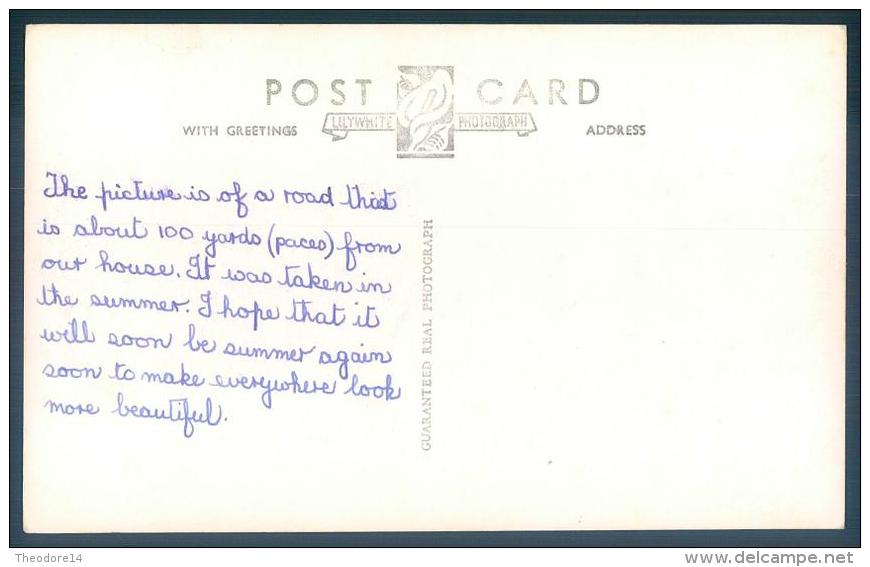 POST CARD
WITH GREETINGS
LILYWHITE PHOTOGRAPH
ADDRESS
The picture is of a road that
is about 100 yards (paces) from
our house. It was taken in
the summer. I hope that it
will soon be summer again
soon to make everywhere look
more beautiful.
GUARANTEED REAL PHOTOGRAPH
Theodore14
delcampe.net